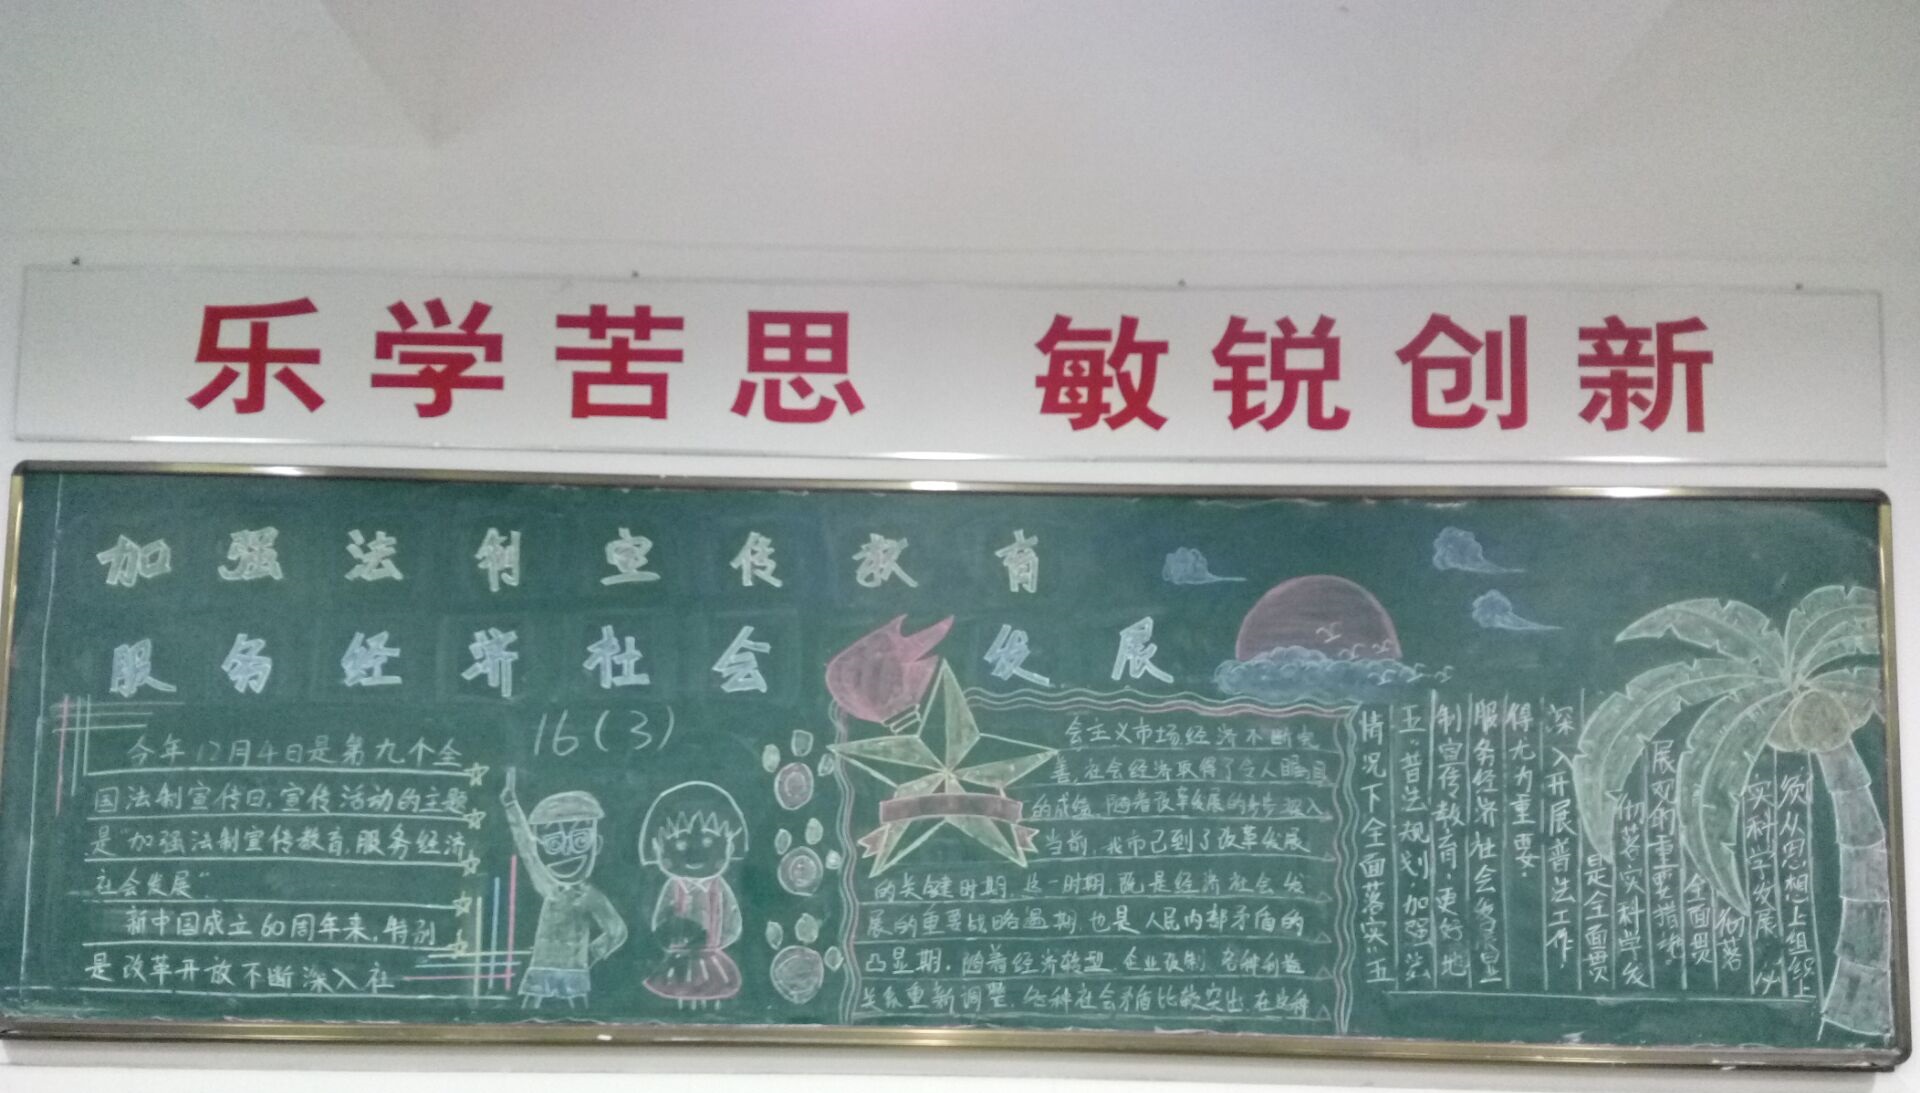 乐学苦思 敏锐创新
加强法制宣传教育
服务经济社会发展
16(3)
今年12月4日是第九个全
国法制宣传日,宣传活动的主题
是"加强法制宣传教育,服务经济
社会发展"
新中国成立60周年来,特别
是改革开放不断深入社
会主义市场经济不断完
善,社会经济取得了令人瞩目
的成绩,随着改革发展的步步深入
当前,我市已到了改革发展
的关键时期,这一时期,既是经济社会发
展的重要战略遇期,也是人民内部矛盾的
凸显期,随着经济转型,企业改制,各种利益
关系重新调整,各种社会矛盾比较突出,在这种
情况下全面落实"五
五"普法规划,加强法
制宣传教育,更好地
服务经济社会发展显
得尤为重要。
深入开展普法工作,
是全面贯
彻落实科学发
展观的重要措施,
全面贯
彻落
实科学发展,必
须从思想上组织上